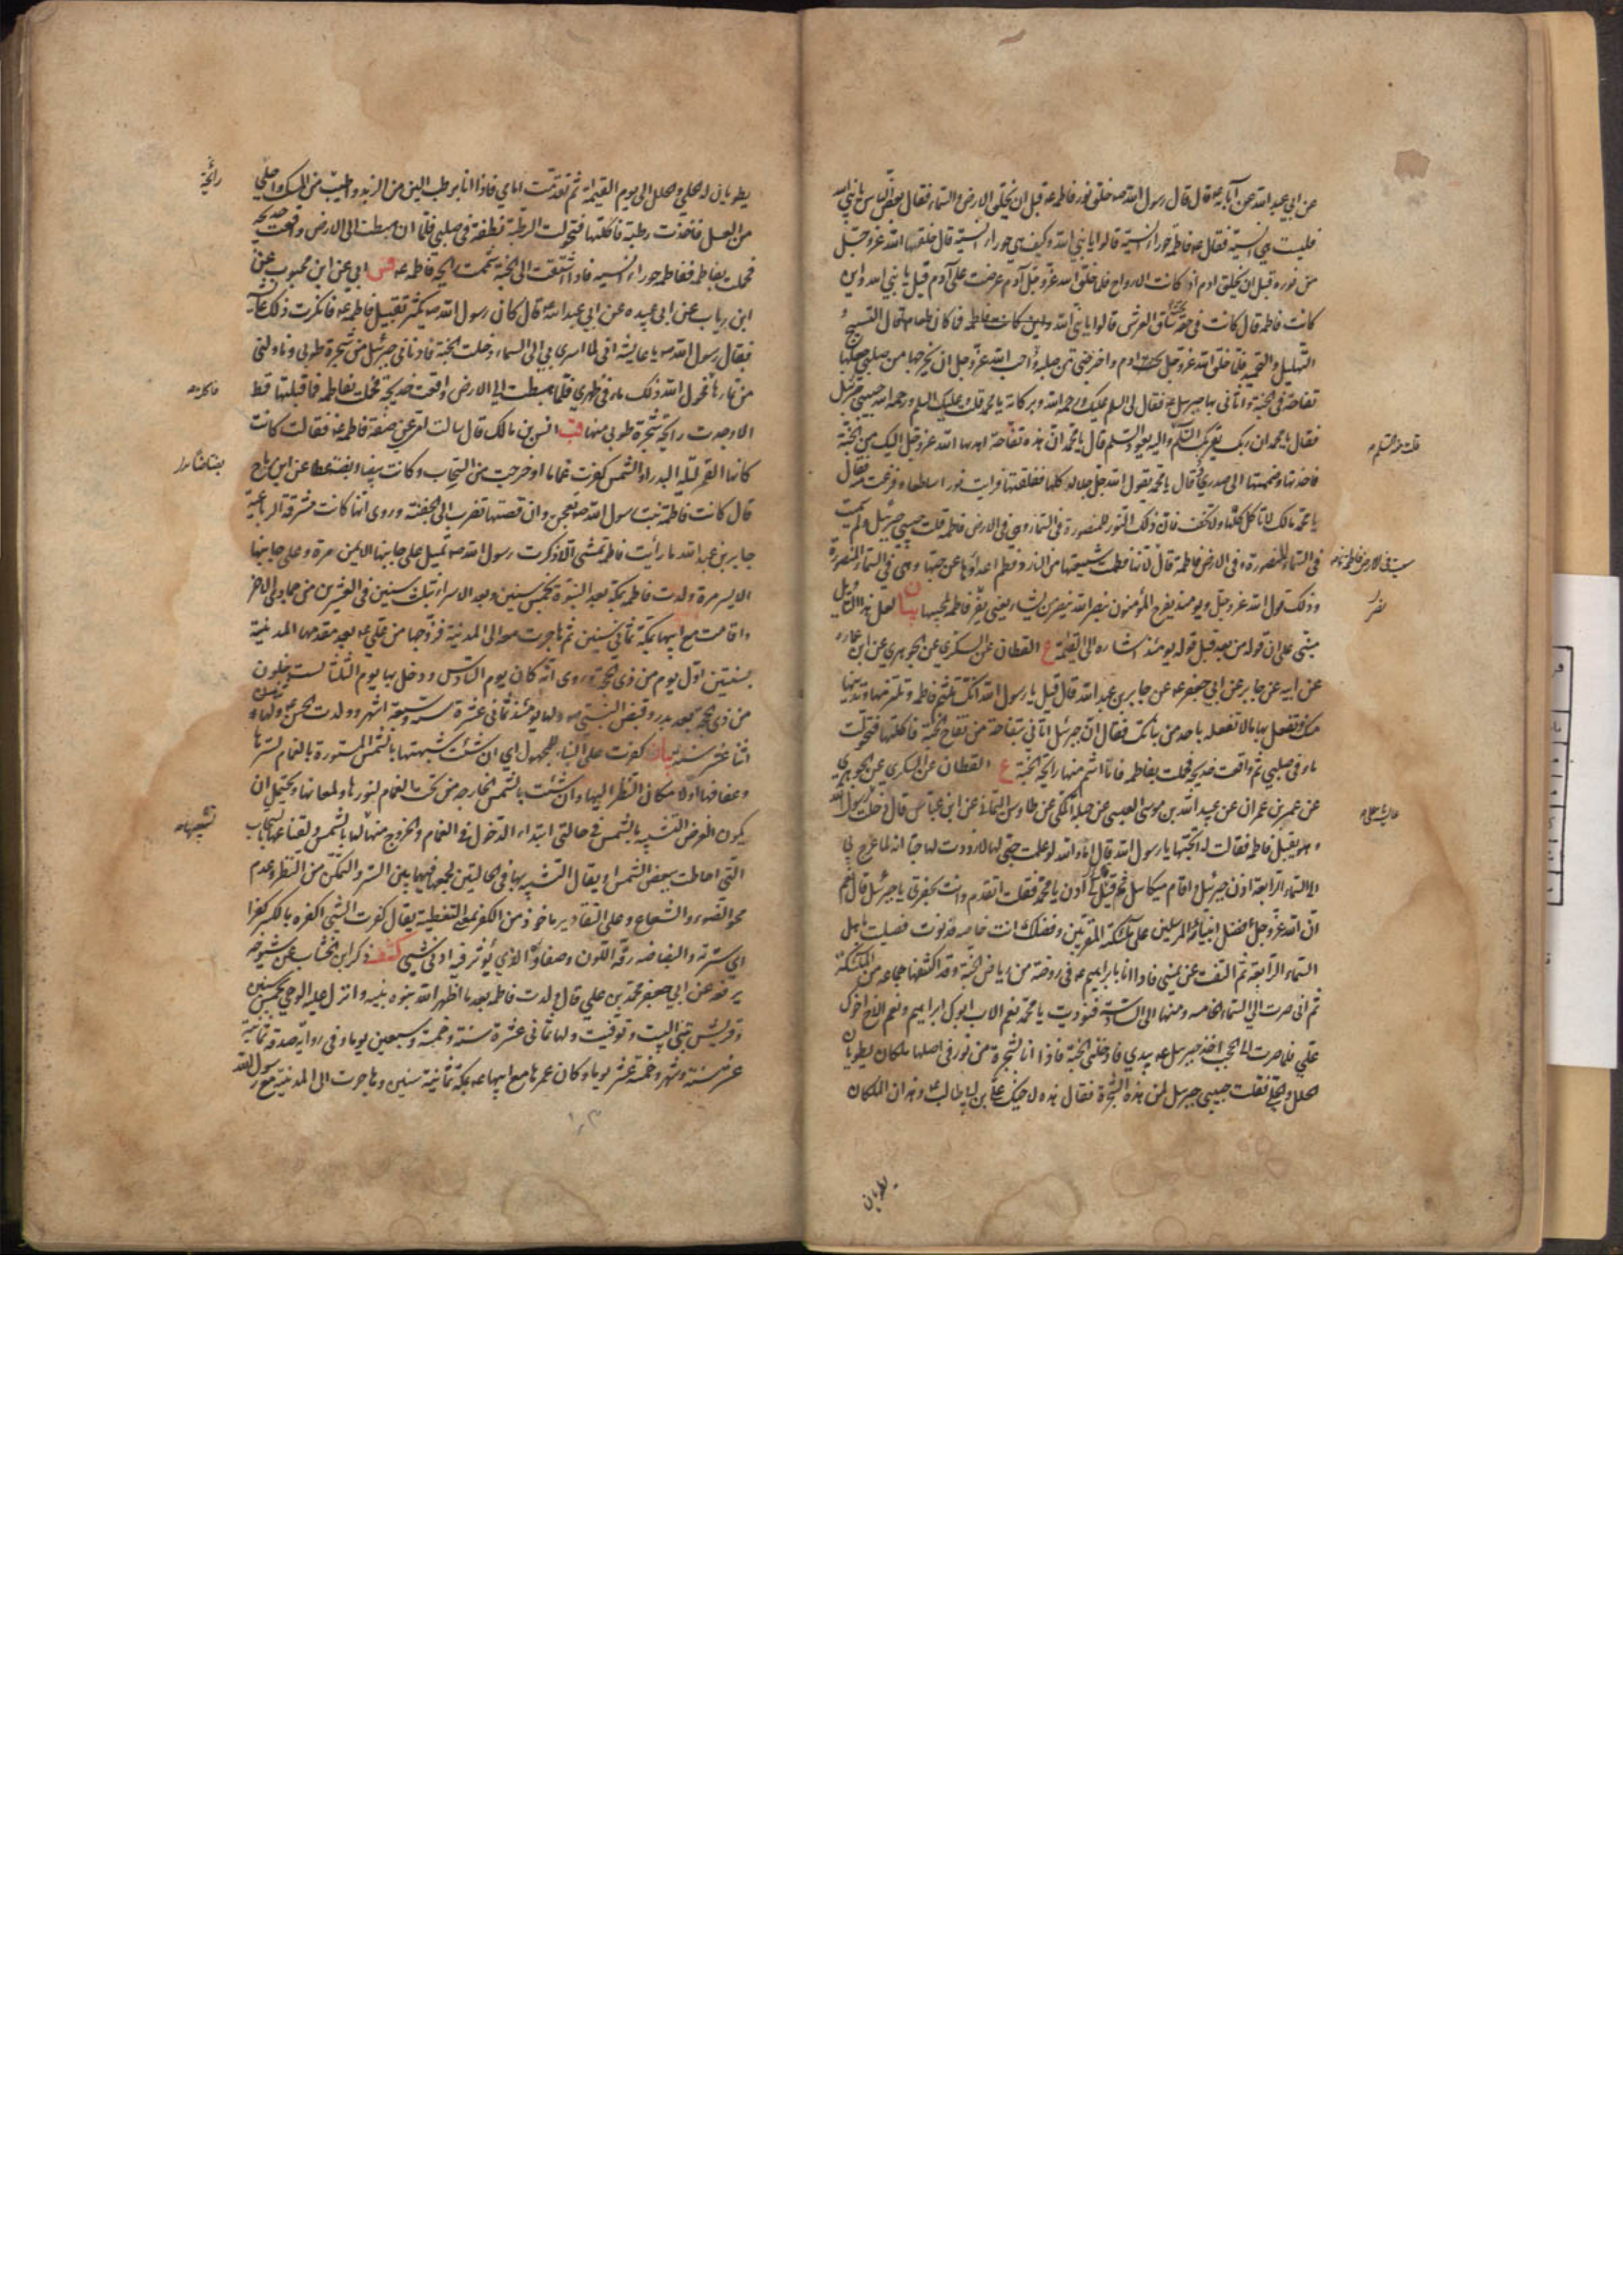 عن ابي عبد الله عن آبائه ع قال قال رسول الله ص خلق نور فاطمة ع قبل ان يخلق الارض والسماء فقال بعض الناس يا نبي الله
فليست هي انسية فقال ع فاطمة حوراء انسية قالوا يا نبي الله وكيف هي حوراء انسية قال خلقها الله عز وجل
من نوره قبل ان يخلق ادم اذ كانت الارواح فلما خلق الله عز وجل آدم عرضت على آدم قيل يا نبي الله واين
كانت فاطمة قال كانت في حقة تحت ساق العرش قالوا يا نبي الله فما كان طعامها قال التسبيح و
التهليل والتحميد فلما خلق الله عز وجل ادم واخرجني من صلبه واحب الله عز وجل ان يخرجها من صلبي جعلها
تفاحة في الجنة واتاني بها جبرئيل ع فقال لي السلم عليك ورحمة الله وبركاته يا محمد قلت وعليك السلم ورحمة الله حبيبي جبرئيل
فقال يا محمد ان ربك يقرئك السلم واليه يعود السلم قال يا محمد ان هذه تفاحة اهداها الله عز وجل اليك من الجنة
فاخذتها وضممتها الى صدري قال يا محمد يقول الله جل جلاله كلها ففلقتها فرايت نورا ساطعا وفزعت منه فقال
يا محمد مالك لا تاكل كلها ولا تخف فان ذلك النور للمنصورة في السماء وهي في الارض فاطمة قلت حبيبي جبرئيل ولم سميت
في السماء المنصورة وفي الارض فاطمة قال لانها فطمت شيعتها من النار وفطم اعداؤها عن حبها وهي في السماء المنصورة
وذلك قول الله عز وجل ويومئذ يفرح المؤمنون بنصر الله ينصر من يشاء يعني نصر فاطمة لمحبيها بيان لعل هذا التاويل
مبني على ان قوله من بعد قبل قوله يومئذ اشارة الى القيمة ع القطان عن السكري عن الجوهري عن ابن عمارة
عن ابيه عن جابر عن ابي جعفر ع عن جابر بن عبد الله قال قيل يا رسول الله انك تلثم فاطمة وتلتزمها وتدنيها
منك وتفعل بها ما لا تفعله باحد من بناتك فقال ان جبرئيل اتاني بتفاحة من تفاح الجنة فاكلتها فتحولت
ماء في صلبي ثم واقعت خديجة فحملت بفاطمة فانا اشم منها رائحة الجنة ع القطان عن السكري عن الجوهري
عن عمر بن عمران عن عبيد الله بن موسى العبسي عن جبلة المكي عن طاوس اليماني عن ابن عباس قال دخلت رسول الله
وهو يقبل فاطمة فقالت له اتحبها يا رسول الله قال اما والله لو علمت حبي لها لازددت لها حبا انه لما عرج بي
الى السماء الرابعة اذن جبرئيل واقام ميكائيل ثم قيل لي ادن يا محمد فقلت اتقدم وانت بحضرتي يا جبرئيل قال نعم
ان الله عز وجل فضل انبيائه المرسلين على ملئكته المقربين وفضلك انت خاصة فدنوت فصليت باهل
السماء الرابعة ثم التفت عن يميني فاذا انا بابراهيم ع في روضة من رياض الجنة وقد اكتنفها جماعة من الملئكة
ثم اني صرت الى السماء الخامسة ومنها الى السادسة فنوديت يا محمد نعم الاب ابوك ابراهيم ونعم الاخ اخوك
علي فلما صرت الى الحجب اخذ جبرئيل ع بيدي فادخلني الجنة فاذا انا بشجرة من نور في اصلها ملكان يطويان
الحلل والحلي فقلت حبيبي جبرئيل لمن هذه الشجرة فقال هذه لاخيك علي بن ابي طالب ع وهذان الملكان
يطويان
يطويان له الحلي والحلل الى يوم القيمة ثم تقدمت امامي فاذا انا برطب الين من الزبد واطيب من المسك واحلى
من العسل فاخذت رطبة فاكلتها فتحولت الرطبة نطفة في صلبي فلما ان هبطت الى الارض واقعت خديجة
فحملت بفاطمة ففاطمة حوراء انسية فاذا اشتقت الى الجنة شممت رائحة فاطمة ع فس ابي عن ابن محبوب عن
ابن رياب عن ابي عبيدة عن ابي عبد الله ع قال كان رسول الله ص يكثر تقبيل فاطمة ع فانكرت ذلك عايشة
فقال رسول الله ص يا عايشة اني لما اسري بي الى السماء دخلت الجنة فادناني جبرئيل من شجرة طوبى وناولني
من ثمارها فحول الله ذلك ماء في ظهري فلما هبطت الى الارض واقعت خديجة فحملت بفاطمة فما قبلتها قط
الا وجدت رائحة شجرة طوبى منها قب انس بن مالك قال سالت امي عن صفة فاطمة ع فقالت كانت
كانها القمر ليلة البدر او الشمس كفرت غماما او خرجت من السحاب وكانت بيضاء بضة عطا عن ابي رباح
قال كانت فاطمة بنت رسول الله ص تعجن وان قصتها تضرب الى الجفنة وروي انها كانت مشرقة الرباعية
جابر بن عبد الله ما رأيت فاطمة تمشي الا ذكرت رسول الله ص تميل على جانبها الايمن مرة وعلى جانبها
الايسر مرة ولدت فاطمة بمكة بعد النبوة بخمس سنين وبعد الاسراء بثلث سنين في العشرين من جمادى الاخرة
واقامت مع ابيها بمكة ثماني سنين ثم هاجرت معه الى المدينة فزوجها من علي ع بعد مقدمها المدينة
بسنتين اول يوم من ذي الحجة وروي انه كان يوم السادس ودخل بها يوم الثلثا لست خلون
من ذي الحجة بعد بدر وقبض النبي ص ولها يومئذ ثماني عشرة سنة وسبعة اشهر وولدت الحسن ع ولها
اثنا عشر سنة بيان كفرت على البناء للمجهول اي ان شئت شبهتها بالشمس المستورة بالغمام لسترها
وعفافها او لا مكان النظر اليها وان شئت بالشمس الخارجة من تحت الغمام لنورها ولمعانها ويحتمل ان
يكون الغرض التشبيه بالشمس في حالتي ابتداء الدخول في الغمام والخروج منها لها بالشمس ولقناعها بالسحاب
التي احاطت ببعض الشمس او يقال التشبيه بها في الحالتين لجمعها فيهما بين الستر والتمكن من النظر وعدم
محو الضوء والشعاع وعلى التقادير ماخوذ من الكفر بمعنى التغطية يقال كفرت الشيء اكفره بالكسر كفرا
اي سترته والبضاضة رقة اللون وصفاؤه الذي يؤثر فيه ادنى شيء كشف ذكر ابن الخشاب عن شيوخه
يرفعه عن ابي جعفر محمد بن علي قال ولدت فاطمة بعد ما اظهر الله نبوة نبيه وانزل عليه الوحي بخمس سنين
وقريش تبني البيت وتوفيت ولها ثماني عشرة سنة وخمسة وسبعين يوما وفي رواية صدقة ثمانية
عشر سنة وشهر وخمسة عشر يوما وكان عمرها مع ابيها ع بمكة ثمانية سنين وهاجرت الى المدينة مع رسول الله